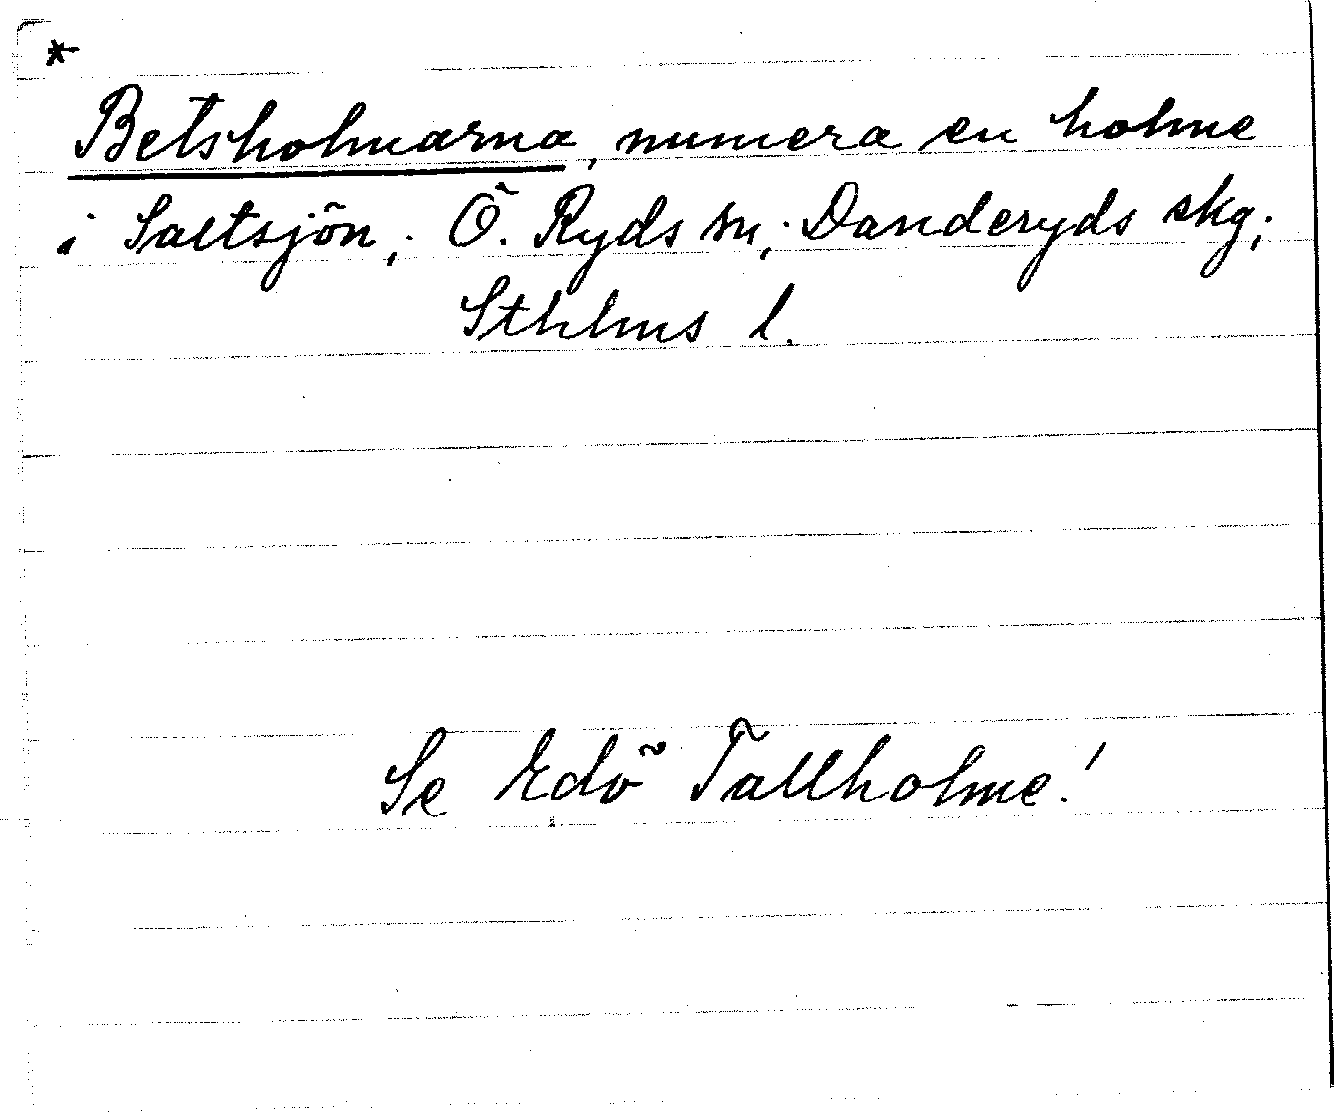 *
Betsholmarna, numera en holme
i Saltsjön; Ö. Ryds sn; Danderyds skg;
Sthlms l.
Se Edö Tallholme!